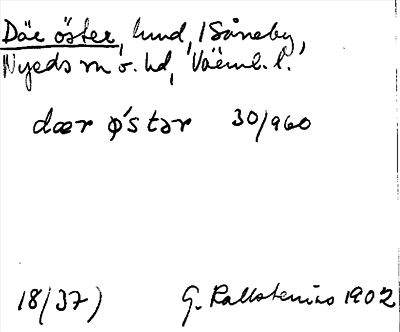 Där öster, hmd, 1 Såneby,
Nyeds sn o. hd, Värml. l.
dær ǿstər 30/960
18/37) G. Kallstenius 1902